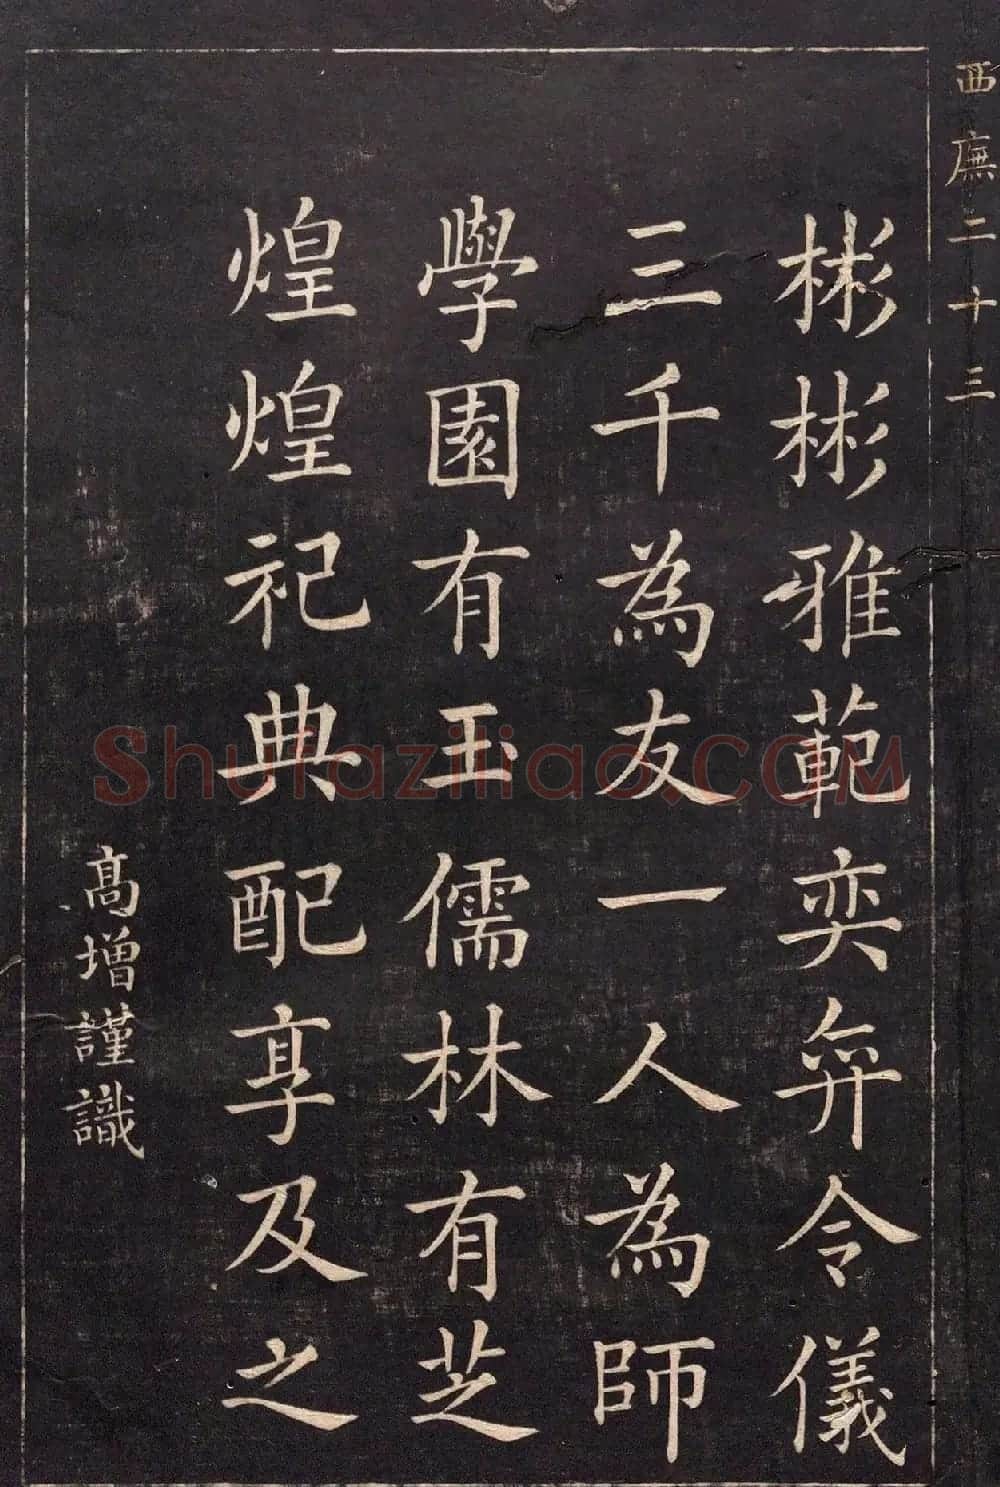 西廡二十三
彬彬雅範奕弈令儀
三千為友一人為師
學園有玉儒林有芝
煌煌祀典配享及之
高增謹識
Shufaziliao.COM